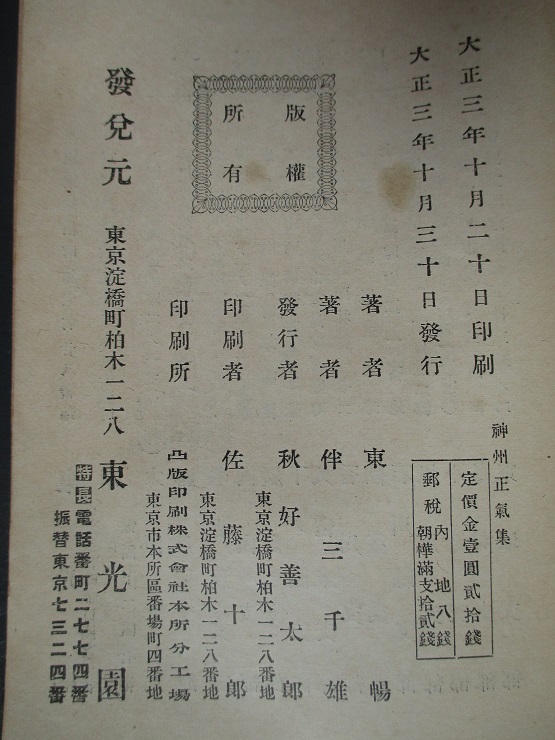 大正三年十月二十日印刷
大正三年十月三十日發行
神州正氣集
定價金壹圓貳拾錢
郵稅 內地八錢
朝樺滿支拾貳錢
版權
所有
著者 東暢
著者 伴三千雄
發行者 秋好善太郎
東京淀橋町柏木一二八番地
印刷者 佐藤十郎
東京淀橋町柏木一二八番地
印刷所 凸版印刷株式會社本所分工場
東京市本所區番場町四番地
發兌元 東京淀橋町柏木一二八 東光園
特長電話番町二七七四番
振替東京七三二四番